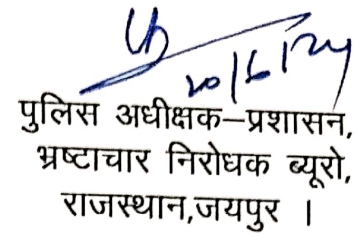 20/6/24
पुलिस अधीक्षक–प्रशासन,
भ्रष्टाचार निरोधक ब्यूरो,
राजस्थान,जयपुर ।